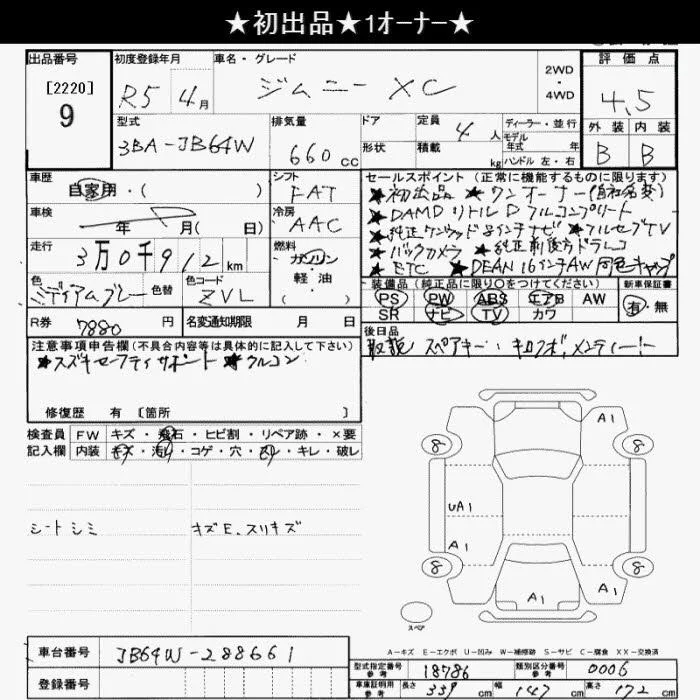 ★初出品★1オーナー★
出品番号 初度登録年月 車名・グレード 評価点
[2220]
9
R5 4月 ジムニー XC 2WD・4WD 4.5
型式 排気量 ドア 定員 4人 ディーラー・並行 外装 内装
3BA-JB64W 660cc 形状 積載 kg モデル年式 年式 ハンドル 左・右 B B
車歴 シフト セールスポイント(正常に機能するものに限ります)
自家用・( ) FAT ★初出品 ★ワンオーナー(自社名変)
★DAMD リトルD フルコンプリート
車検 冷房
年 月( 日) AAC ★純正ケンウッド8インチナビ ★フルセグTV
走行 燃料 ★バックカメラ ★純正前後方ドラレコ
3万0千912km ガソリン・軽油 ★ETC ★DEAN 16インチAW 同色キャップ
色 色替 色コード 装備品(純正品に限り○をつけてください) 新車保証書
ミディアムグレー ZVL PS PW ABS エアB AW 有・無
SR ナビ TV カワ
R券 7880円 名変通知期限 月 日 後日品
取説 スペアキー
注意事項申告欄(不具合内容等は具体的に記入して下さい)
★スズキセーフティサポート ★クルコン
修復歴 有 [箇所 ]
検査員 FW キズ・飛石・ヒビ割・リペア跡・×要
記入欄 内装 キズ・汚れ・コゲ・穴・スレ・キレ・破レ
A1
8 8
UA1
シートシミ キズE、スリキズ
A1
8 8
A1 A1
スペア
A-キズ E-エクボ U-凹み W-補修跡 S-サビ C-腐食 XX-交換済
車台番号 JB64W-288661
型式指定番号 参考 18786 類別区分番号 参考 0006
登録番号
車庫証明用 参考 長さ 339cm 幅 147cm 高さ 172cm